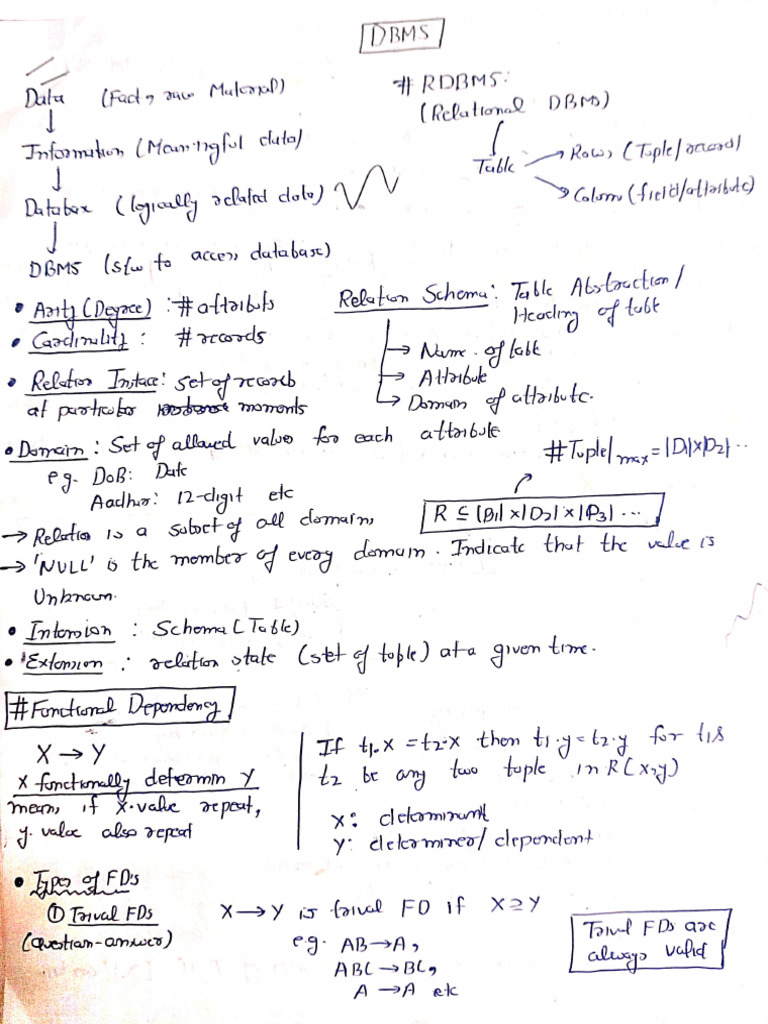 DBMS
Data (Fact, raw Material)
↓
Information (Meaningful data)
↓
Database (logically related data)
↓
DBMS (s/w to access database)
# RDBMS:
(Relational DBMS)
Table
→ Rows (Tuple/record)
→ Column (field/attribute)
• Arity (Degree) : # attributs
• Cardinality : # records
• Relation Instace: set of records
at particular moments
Relation Schema: Table Abstraction/
Heading of table
→ Name of table
→ Attribute
→ Domain of attribute.
• Domain : Set of allowed value for each attribute
e.g. DoB: Date
Aadhar: 12-digit etc
#Tuple|max = |D1|x|D2| ..
R ⊆ |D1| x |D2| x |D3| ...
→ Relation is a subset of all domain,
→ 'NULL' is the member of every domain. Indicate that the value is
Unknown.
• Intension : Schema (Table)
• Extension : relation state (set of tuple) at a given time.
# Functional Dependency
X → Y
X functionally determin Y
mean, if X.value repeat,
y.value also repeat
If t1.X = t2.X then t1.y = t2.y for t1 &
t2 be any two tuple in R(x,y)
X: determinant
Y: determiner/dependent
• Types of FDs
① Trival FDs
(question-answer)
X → Y is trival FD if X ⊇ Y
e.g. AB → A,
ABC → BC,
A → A etc
Trivil FDs are
always valid